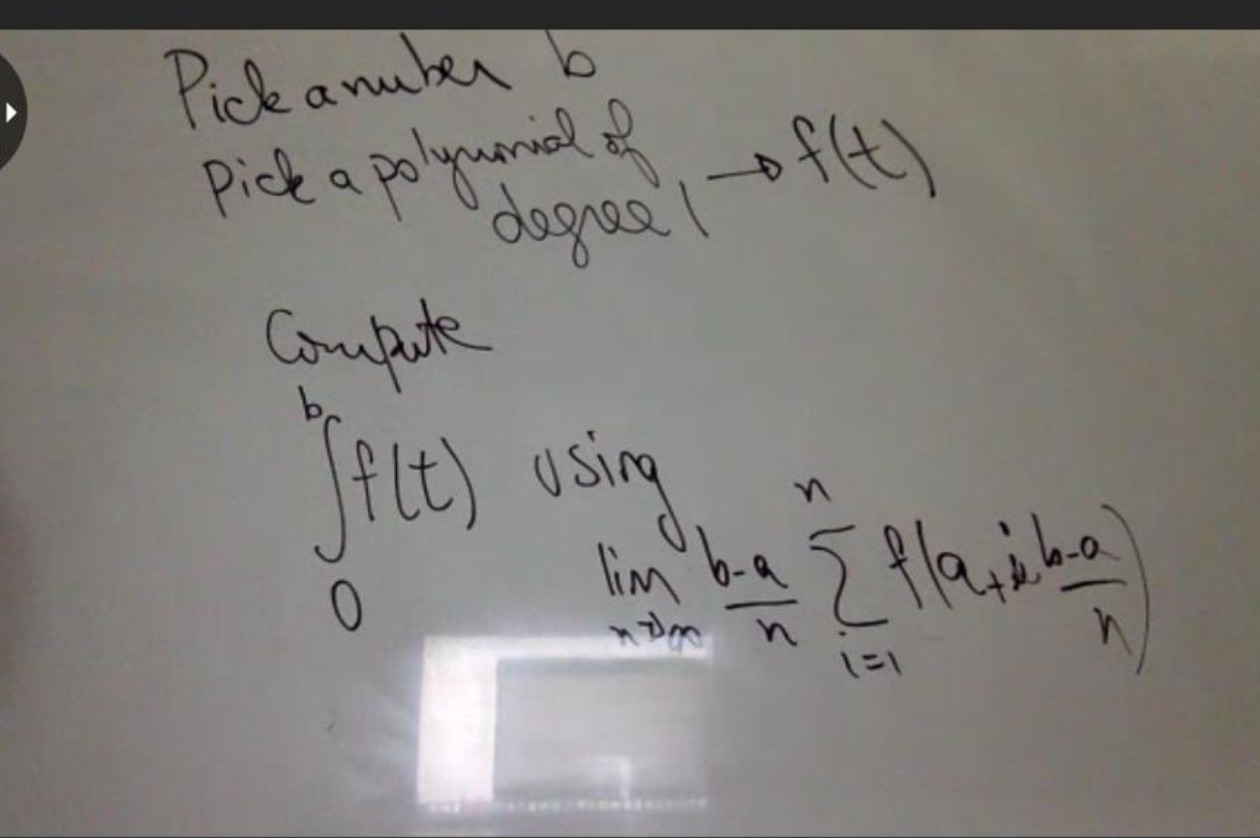 Pick a nuber b
Pick a polynomial of
degree 1 → f(t)
Compute
b
∫ f(t) using
0
lim n→∞ b-a/n n Σ i=1 f(a+i b-a/n)